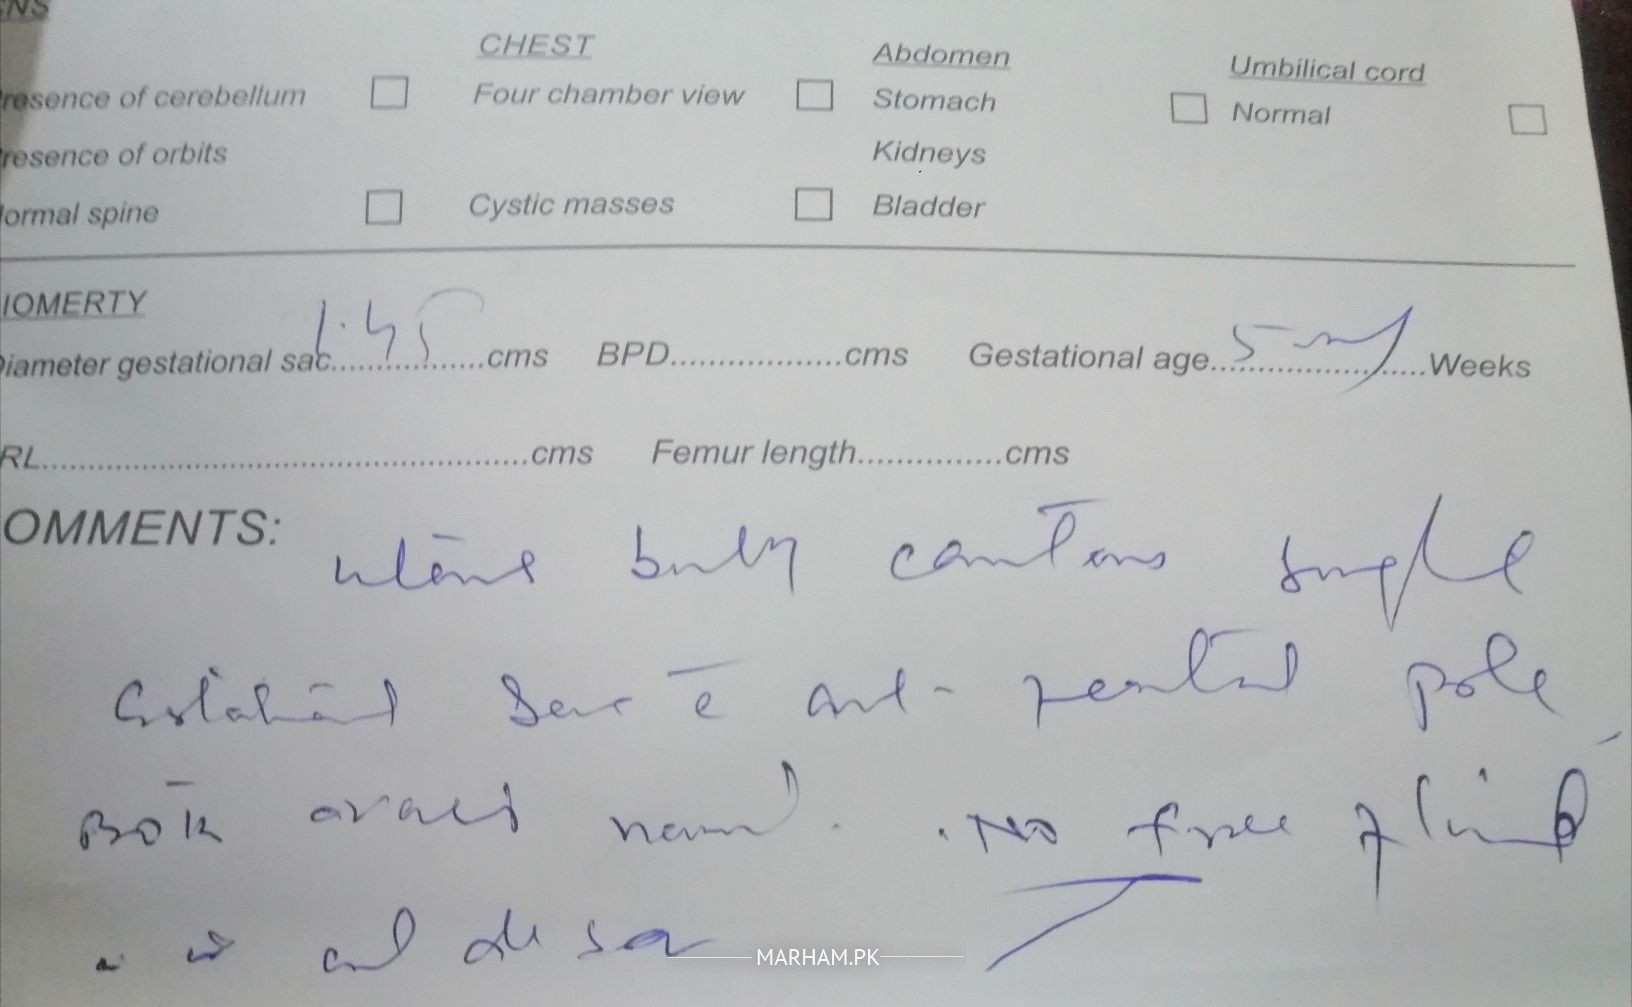 ENS
CHEST Abdomen Umbilical cord
resence of cerebellum Four chamber view Stomach Normal
resence of orbits Kidneys
ormal spine Cystic masses Bladder
IOMERTY
Diameter gestational sac 1.45 cms BPD..................cms Gestational age 5 Weeks
RL..................................................cms Femur length................cms
OMMENTS: uterine contains single
Gestational Sac c̄ pole
Both normal. No free fluid
in cul de sac
MARHAM.PK